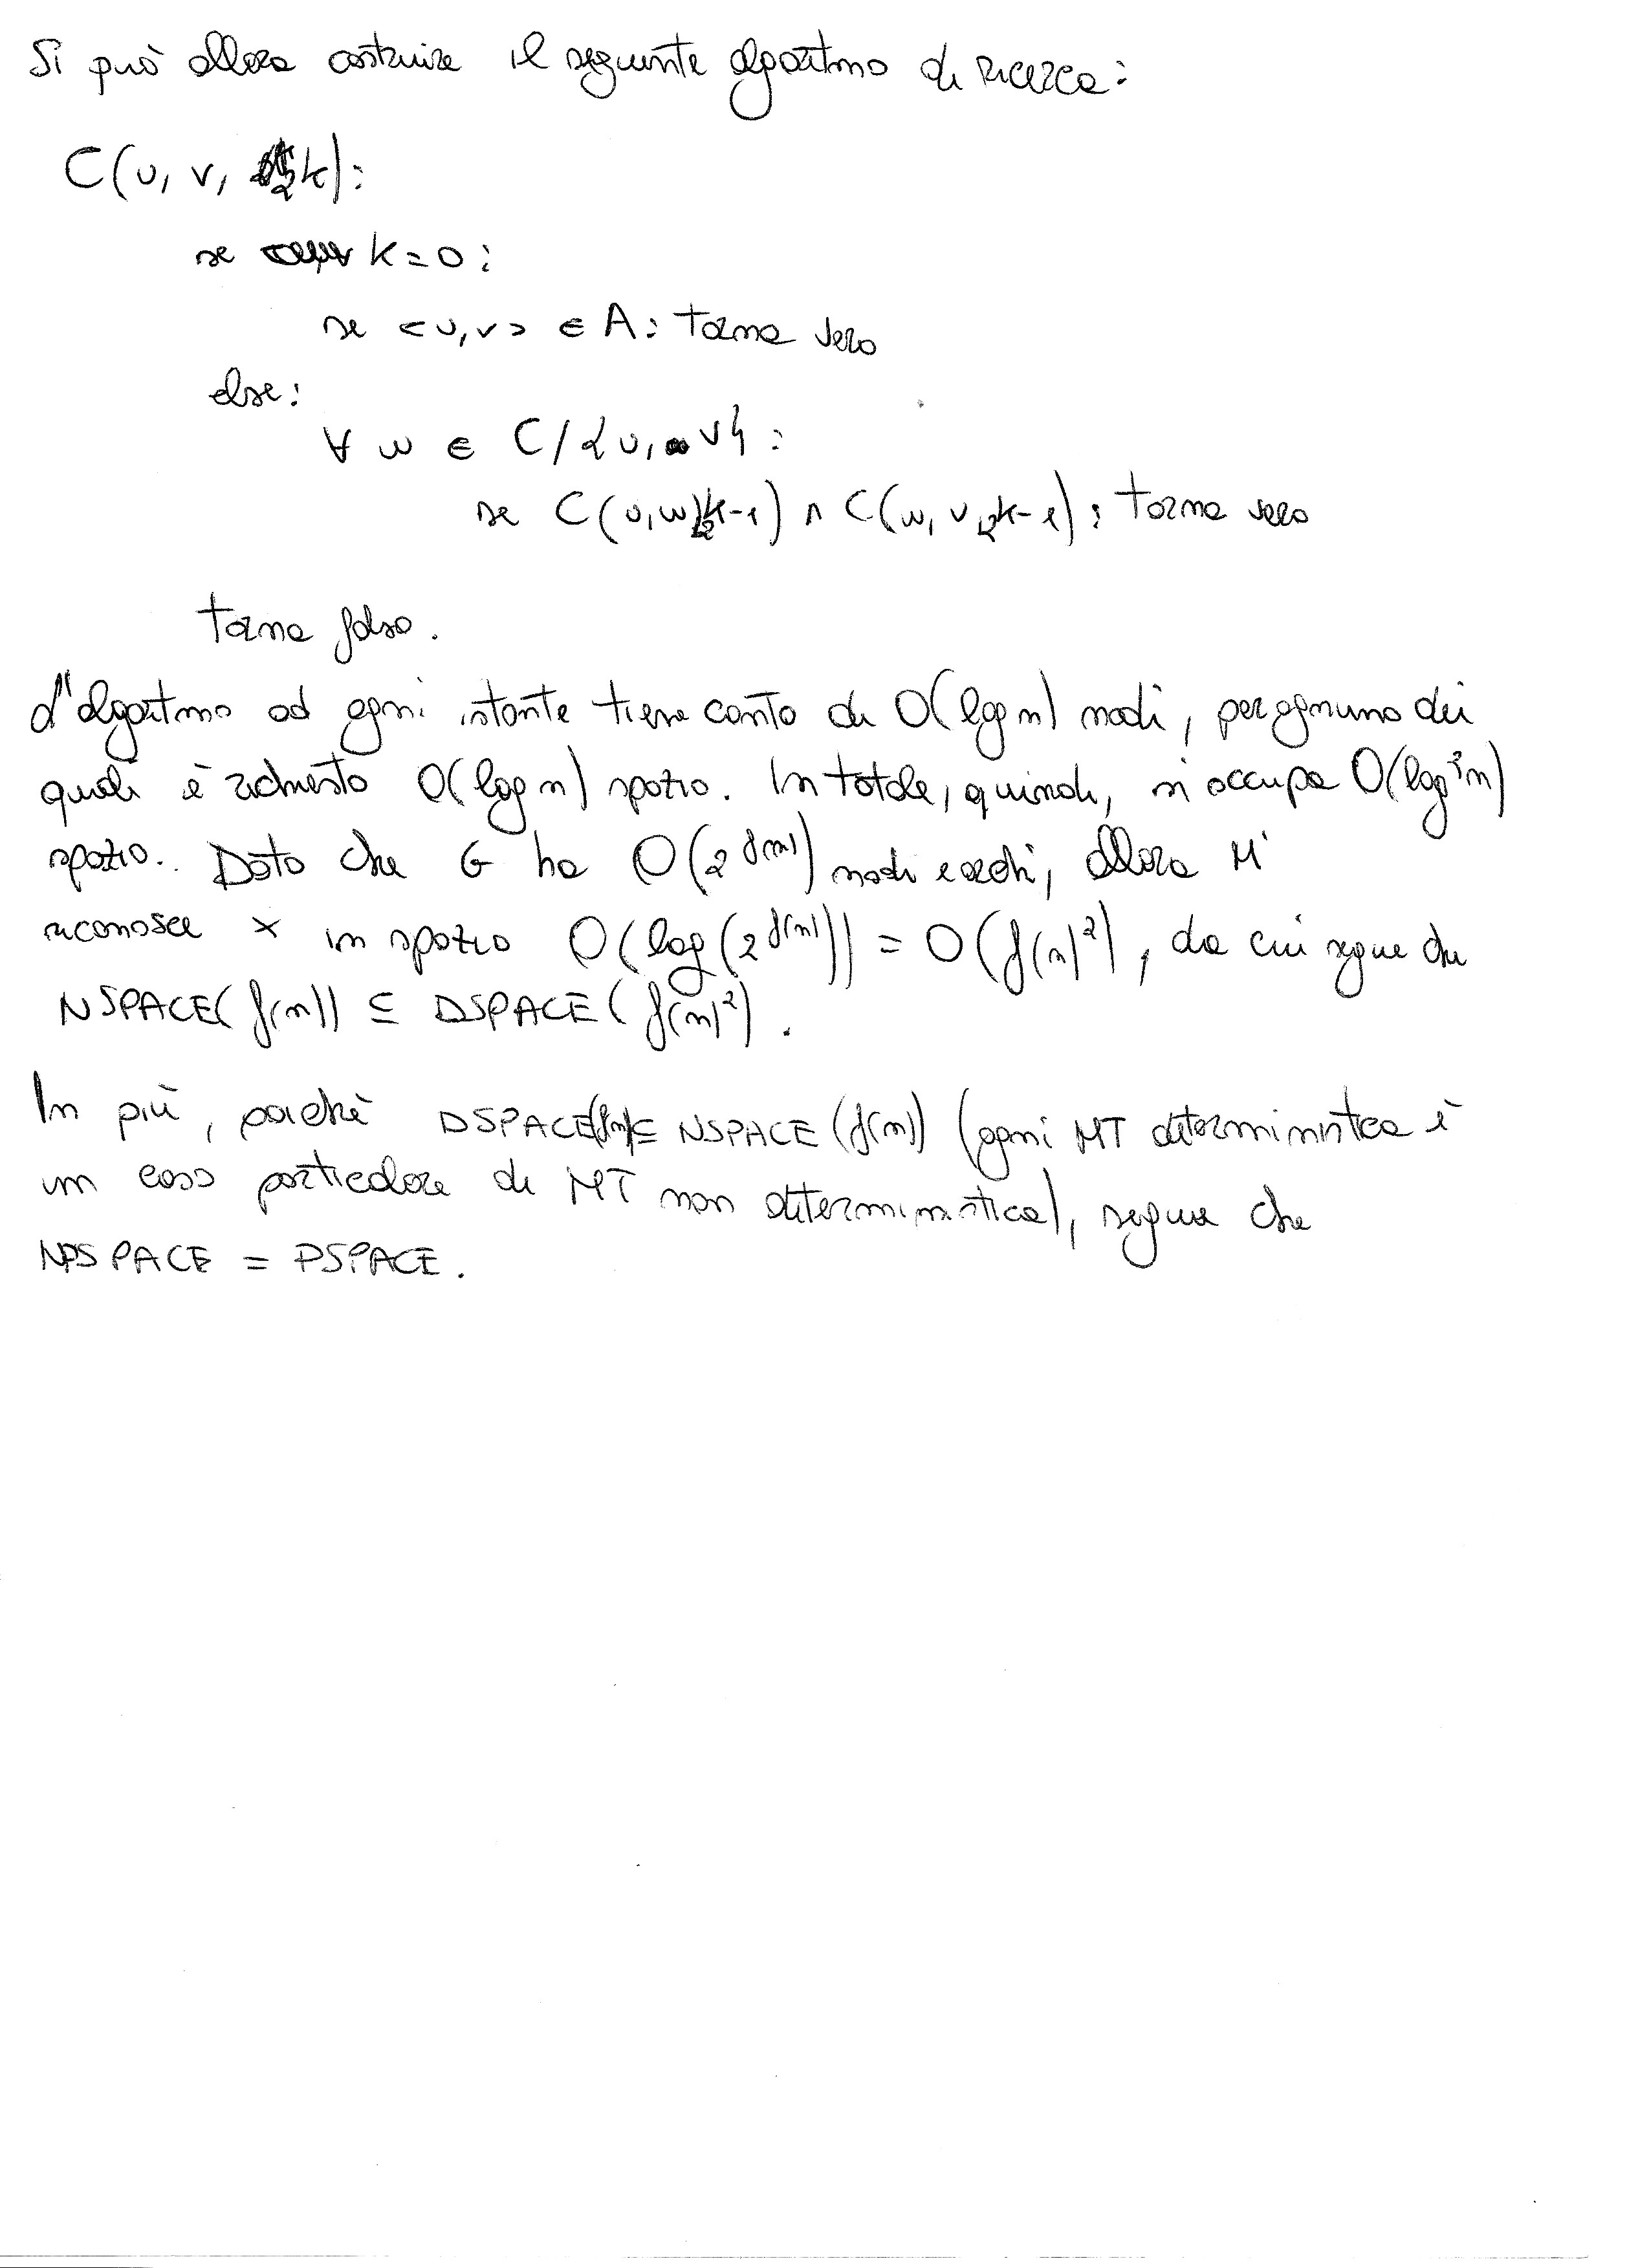 Si può allora costruire il seguente algoritmo di ricerca:
C(u, v, k):
se k = 0:
se <u,v> ∈ A: torna vero
else:
∀ w ∈ C/{u, v}:
se C(u,w,k-1) ∧ C(w, v, k-1): torna vero
torna falso.
L'algoritmo ad ogni istante tiene conto di O(log n) nodi, per ognuno dei
quali è richiesto O(log n) spazio. In totale, quindi, si occupa O(log²n)
spazio. Dato che G ha O(2^f(n)) nodi e archi, allora M'
riconosce x in spazio O(log(2^f(n))) = O(f(n)²), da cui segue che
NSPACE(f(n)) ⊆ DSPACE(f(n)²).
In più, poichè DSPACE(f(n)) ⊆ NSPACE(f(n)) (ogni MT deterministica è
un caso particolare di MT non deterministica), segue che
NPSPACE = PSPACE.